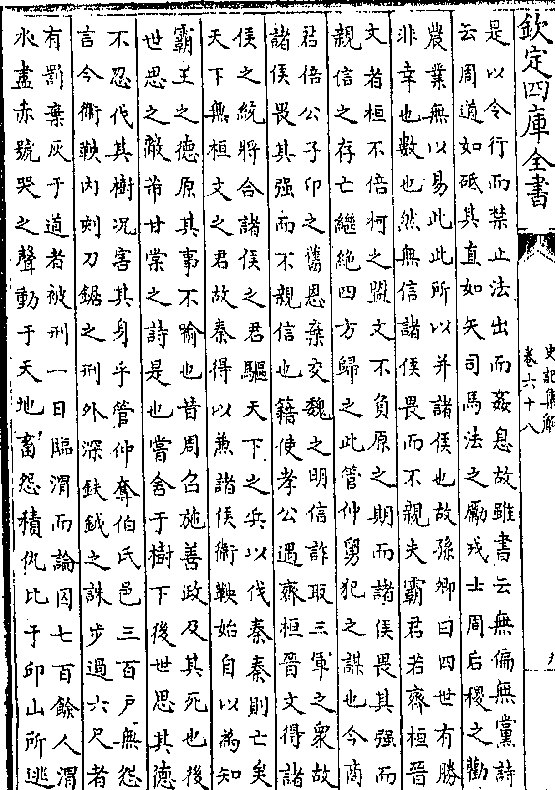 欽定四庫全書
史記集解
卷六十八
九
是以令行而禁止法出而姦息故雖書云無偏無黨詩
云周道如砥其直如矢司馬法之勵戎士周后稷之勸
農業無以易此此所以并諸侯也故孫卿曰四世有勝
非幸也數也然無信諸侯畏而不親夫霸君若齊桓晉
文者桓不倍柯之盟文不負原之期而諸侯畏其强而
親信之存亡繼絶四方歸之此管仲舅犯之謀也今商
君倍公子卬之舊恩棄交魏之明信詐取三軍之衆故
諸侯畏其强而不親信也籍使孝公遇齊桓晉文得諸
侯之統將合諸侯之君驅天下之兵以伐秦秦則亡矣
天下無桓文之君故秦得以兼諸侯衛鞅始自以為知
霸王之德原其事不喻也昔周召施善政及其死也後
世思之蔽芾甘棠之詩是也嘗舍于樹下後世思其德
不忍伐其樹况害其身乎管仲奪伯氏邑三百户無怨
言今衛鞅内刻刀鋸之刑外深鈇鉞之誅步過六尺者
有罰棄灰于道者被刑一日臨渭而論囚七百餘人渭
水盡赤號哭之聲動于天地畜怨積仇比于邱山所逃